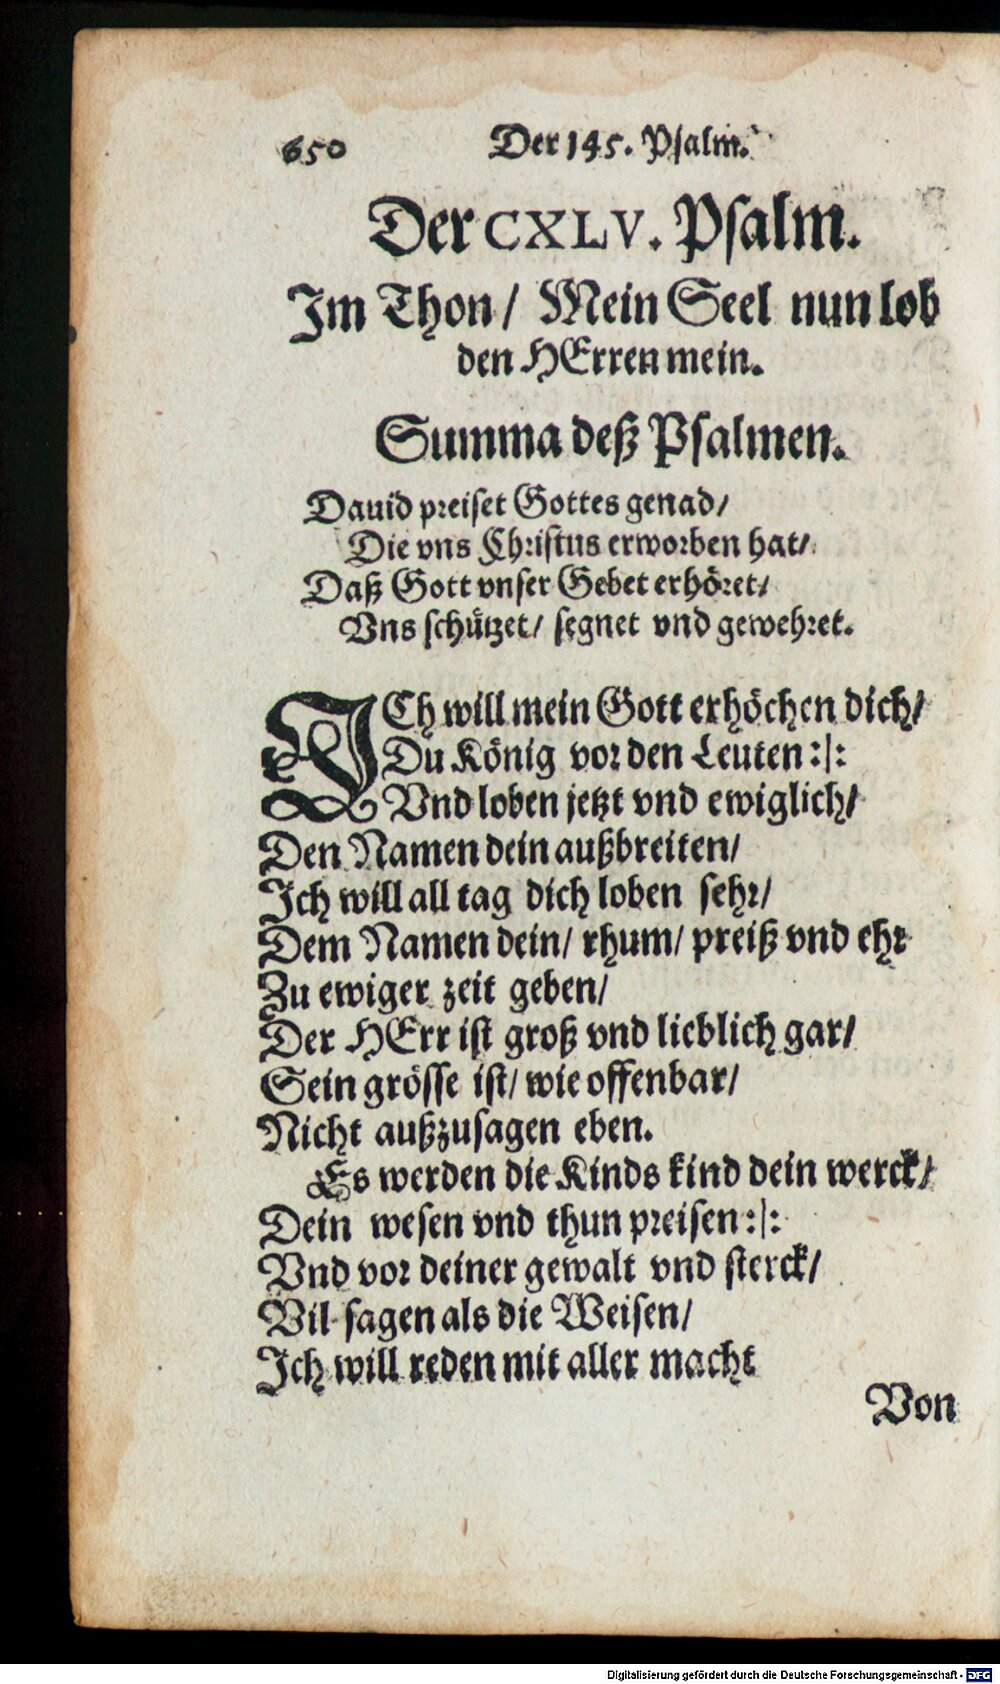 650 Der 145. Psalm.
Der CXLV. Psalm.
Im Thon/ Mein Seel nun lob
den HErren mein.
Summa deß Psalmen.
Dauid preiset Gottes genad/
Die vns Christus erworben hat/
Daß Gott vnser Gebet erhöret/
Vns schützet/ segnet vnd gewehret.
ICh will mein Gott erhöchen dich/
Du König vor den Leuten :|:
Vnd loben jetzt vnd ewiglich/
Den Namen dein außbreiten/
Ich will all tag dich loben sehr/
Dem Namen dein/ rhum/ preiß vnd ehr
Zu ewiger zeit geben/
Der HErr ist groß vnd lieblich gar/
Sein grösse ist/ wie offenbar/
Nicht außzusagen eben.
Es werden die Kinds kind dein werck/
Dein wesen vnd thun preisen :|:
Vnd vor deiner gewalt vnd sterck/
Vil sagen als die Weisen/
Ich will reden mit aller macht
Von
Digitalisierung gefördert durch die Deutsche Forschungsgemeinschaft - DFG